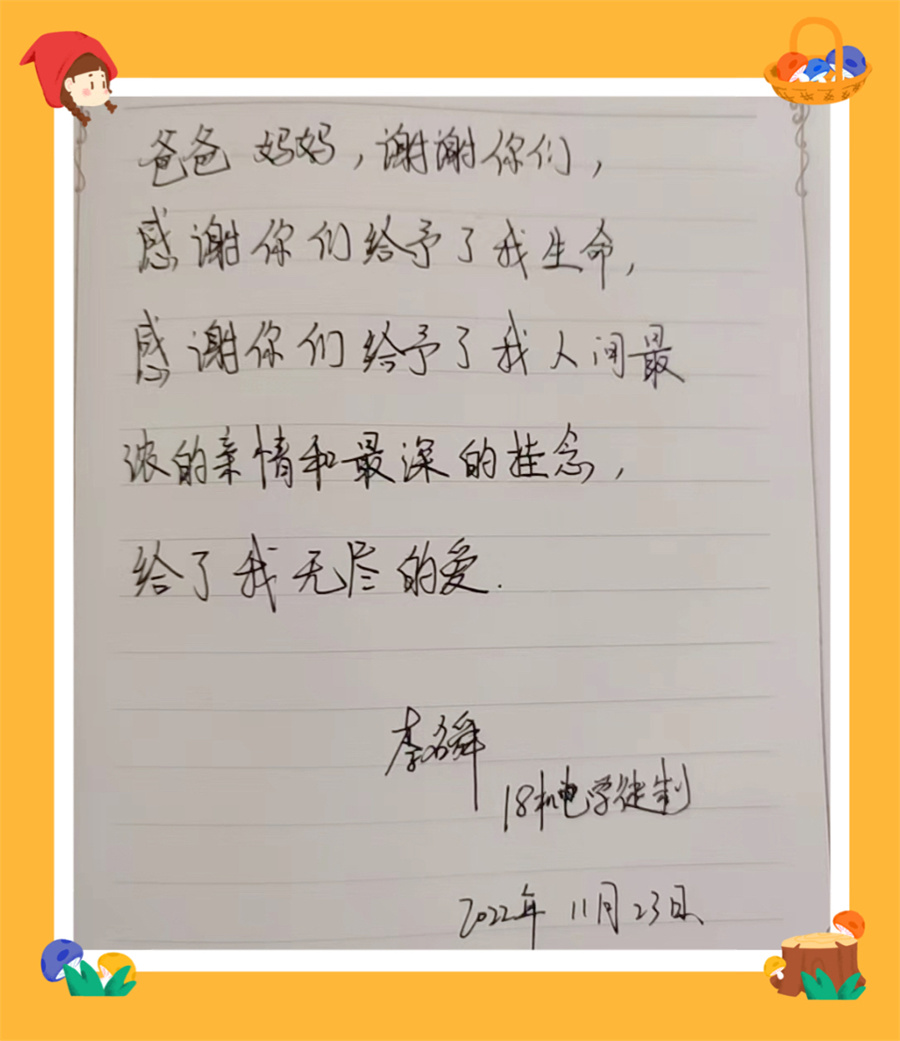 爸爸妈妈，谢谢你们，
感谢你们给予了我生命，
感谢你们给予了我人间最
浓的亲情和最深的挂念，
给了我无尽的爱.
李名舜
18机电学徒制
2022年11月23日